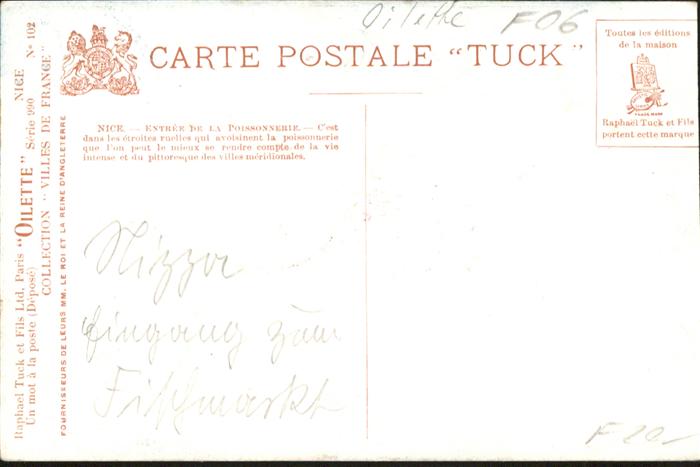 Oilette F06
CARTE POSTALE "TUCK"
Toutes les éditions
de la maison
TRADE MARK
Raphaël Tuck et Fils
portent cette marque
NICE. — ENTRÉE DE LA POISSONNERIE. — C'est
dans les étroites ruelles qui avoisinent la poissonnerie
que l'on peut le mieux se rendre compte de la vie
intense et du pittoresque des villes méridionales.
Raphael Tuck et Fils Ltd, Paris "OILETTE" Série 990 NICE
Un mot à la poste (Déposé) Nº 102
COLLECTION "VILLES DE FRANCE"
FOURNISSEURS DE LEURS MM. LE ROI ET LA REINE D'ANGLETERRE
Nizza
Eingang zum
Fischmarkt
F 20-